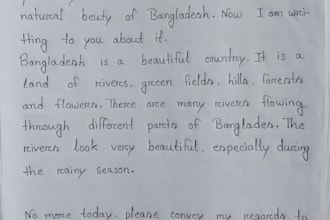 natural beuty of Bangladesh. Now I am wri-
tting to you about it.
Bangladesh is a beautiful country. It is a
land of rivers, green fields, hills, forrests
and flowers. There are many rivers flowing
through different parts of Banglades. The
rivers look very beautiful, especially during
the rainy season.
No more today. please convey my regards to